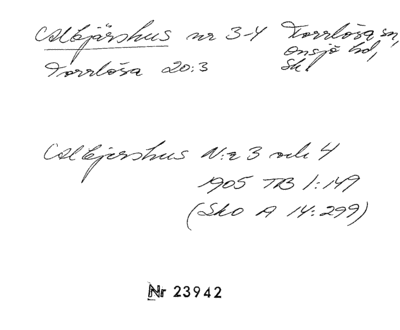 Allbjärshus nr 3-4 Torrlösa sn,
Onsjö hd,
Torrlösa 20:3 Sk
Allbjershus N:r 3 och 4
1905 TB 1:149
(Sko A 14:299)
Nr 23942